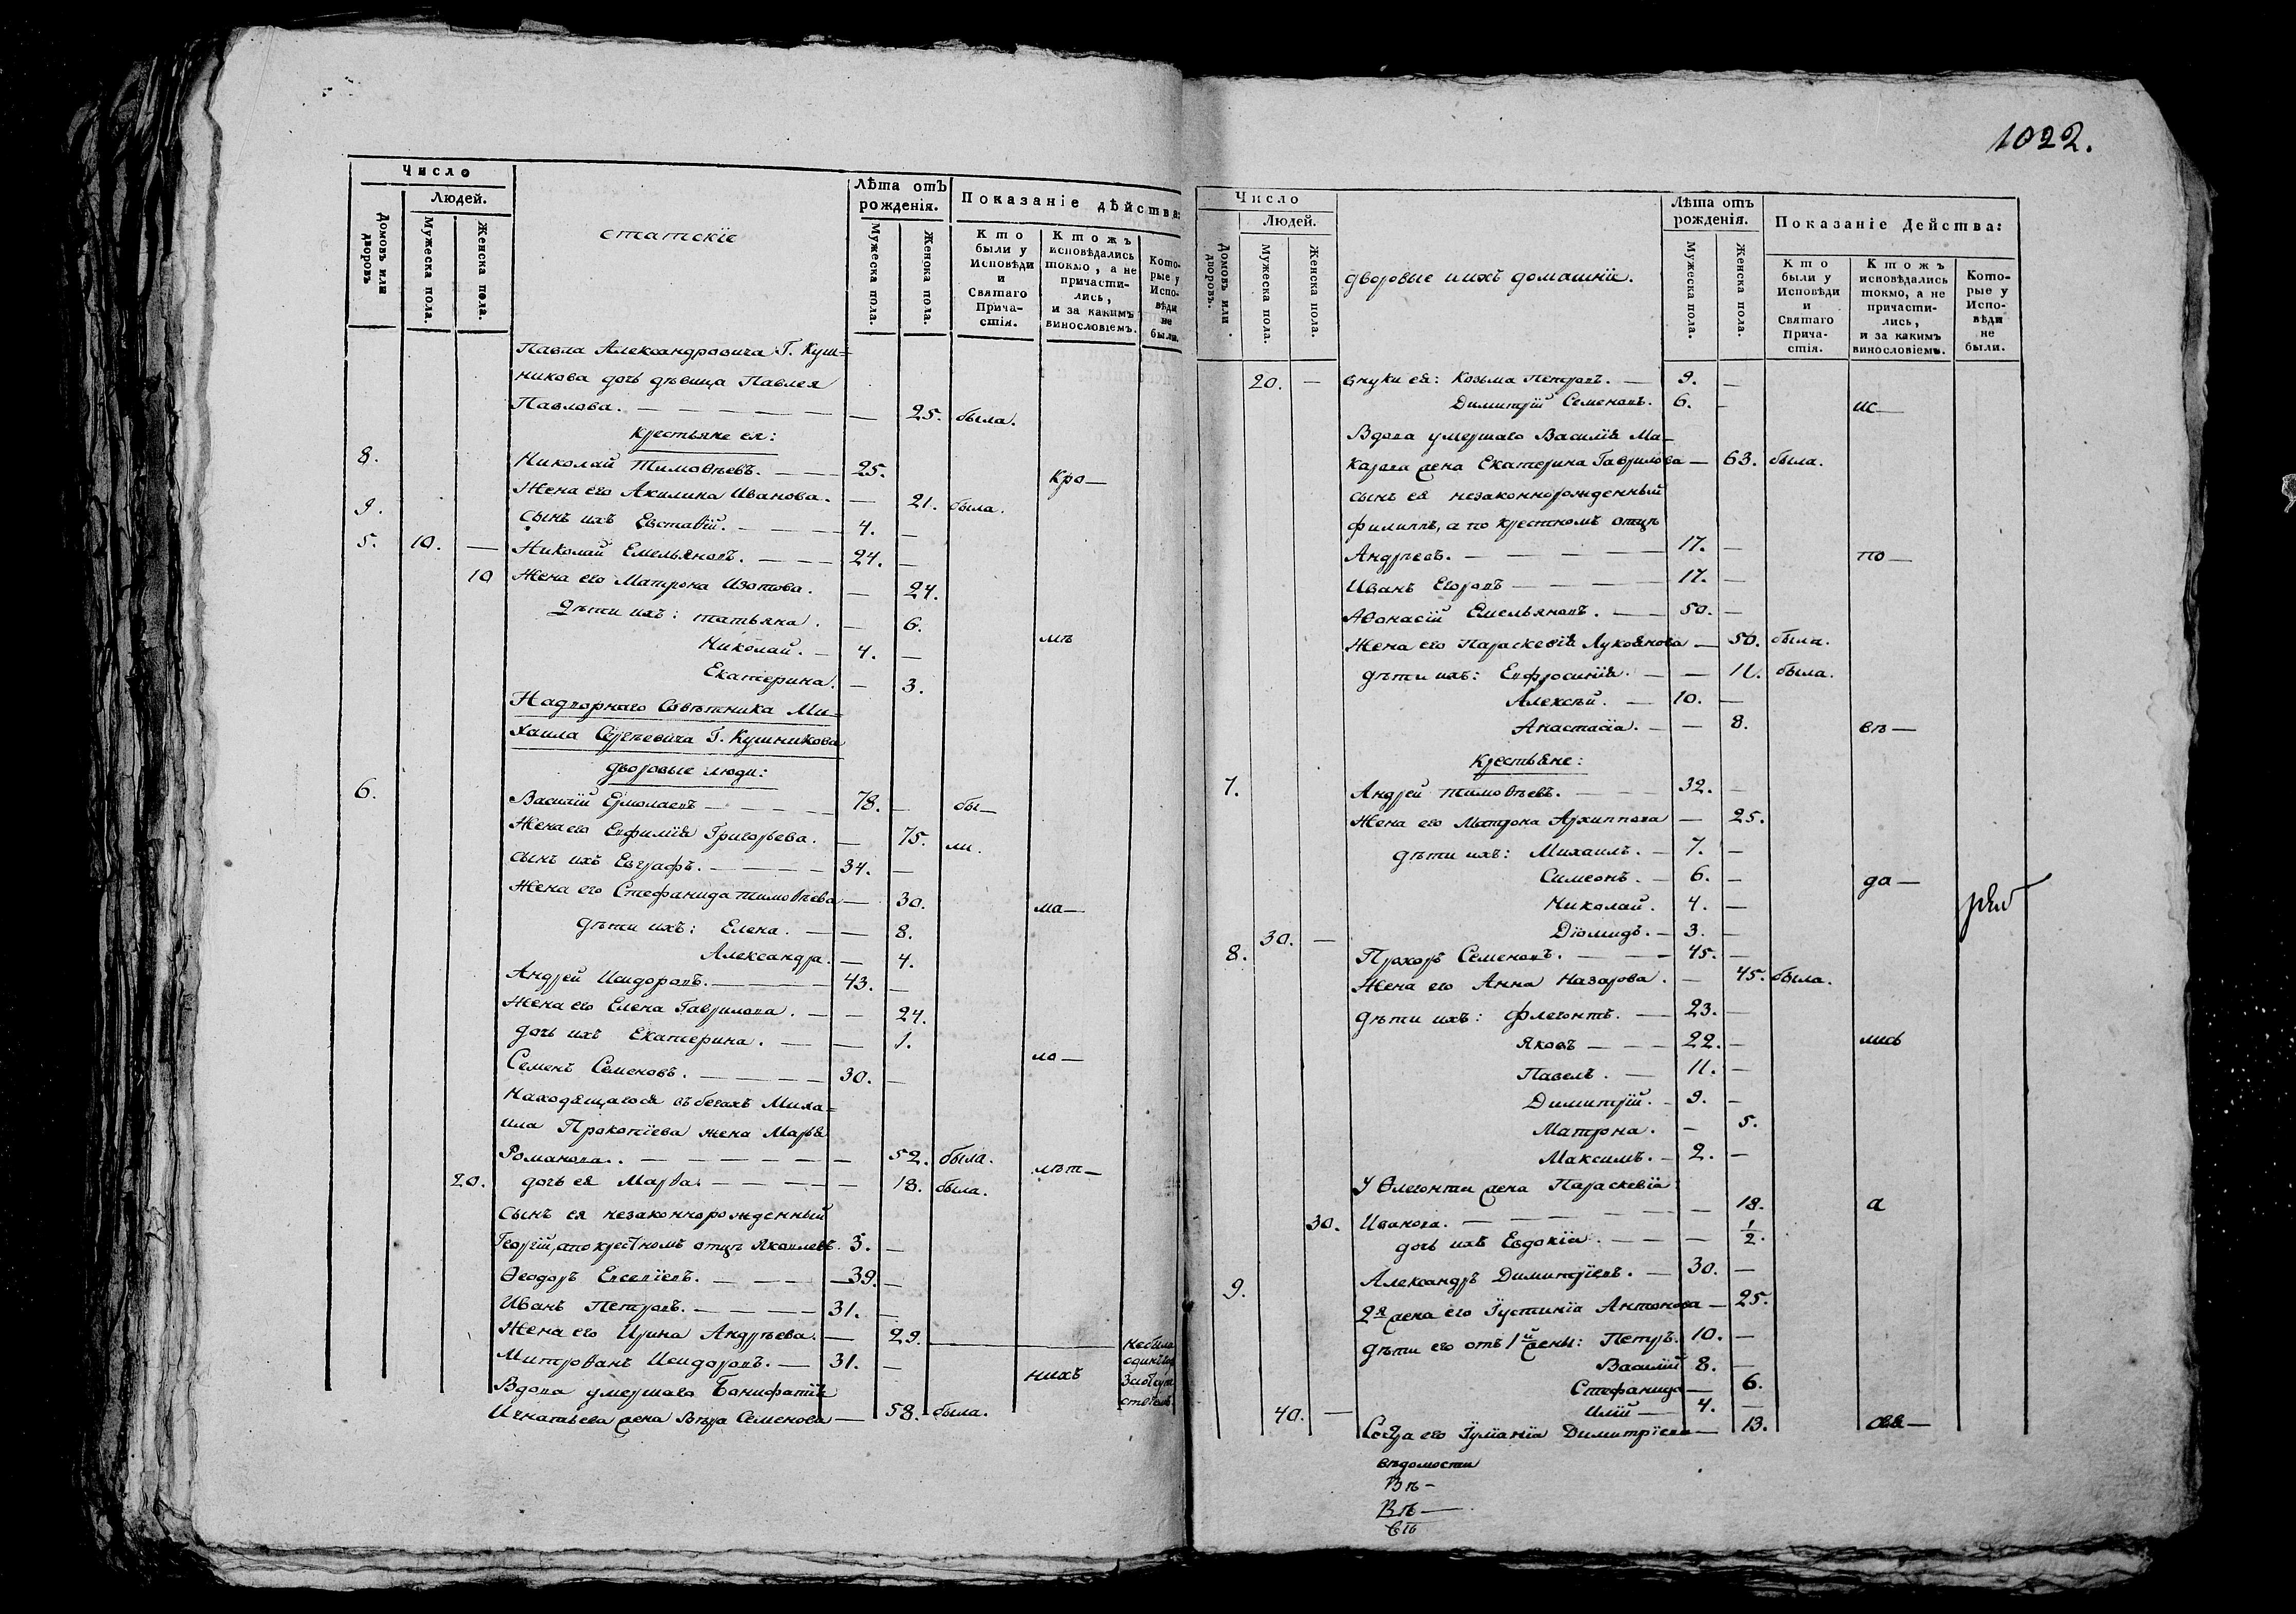 Число
Людей.
Домовъ или дворовъ
Мужеска пола.
Женска пола.
статскіе
Лѣта отъ рожденія.
Мужеска пола.
Женска пола.
Показаніе дѣйства:
Кто были у Исповѣди и Святаго Прича-стія.
Ктожъ исповѣдались токмо, а не причасти-лись, и за какимъ винословіемъ.
Кото-рые у Испо-вѣди не были.
Павла Александровича Г. Куш=
никова дочь дѣвица Павлея
Павлова. — 25. была.
Крестьяне ея:
8. Николай Тимоѳеевъ. — 25. Кро—
Жена его Акилина Иванова. — 21. была.
9. сынъ ихъ Евстаѳій. — 4. —
5. 10. — Николай Емельяновъ. — 24. —
10 Жена его Матрона Изотова. — 24.
Дѣти ихъ: татьяна. — 6. мѣ
Николай. — 4. —
Екатерина. — 3.
Надворнаго Совѣтника Ми=
хаила Сергѣевича Г. Кушникова
дворовые люди:
6. Василій Ермолаевъ — 78. — бы—
Жена его Евфимія Григорьева. — 75. ли.
сынъ ихъ Евграфъ. — 34. —
Жена его Стефанида тимоѳеева — 30. ма—
дѣти ихъ: Елена. — 8.
Александра. — 4.
Андрей Исидоровъ. — 43. —
Жена его Елена Гаврилова. — 24.
дочь ихъ Екатерина. — 1. ло—
Семенъ Семеновъ. — 30. —
Находящагося въ бегахъ Миха=
ила Прокопіева жена Марья
Романова. — 52. была. лѣт—
20. дочь ея Марѳа. — 18. была.
Сынъ ея незаконнорожденный
Георгій, а по крестномъ отцѣ Яковлевъ. 3. —
Ѳеодоръ Евсевіевъ. — 39. —
Иванъ Петровъ. — 31. —
Жена его Ирина Андрѣева. — 29. — небыла
Митрофанъ Исидоровъ. — 31. — нихъ
Вдова умершаго Бонифатія
Игнатьева жена Вѣра Семенова — 58. была.
1022.
Число
Людей.
Домовъ или дворовъ.
Мужеска пола.
Женска пола.
дворовые и ихъ домашніе.
Лѣта отъ рожденія.
Мужеска пола.
Женска пола.
Показаніе Действа:
Кто были у Исповѣди и Святаго Прича-стія.
Ктожъ исповѣдались токмо, а не причасти-лись, и за какимъ винословіемъ.
Кото-рые у Испо-вѣди не были.
20. — внуки ея: Козьма Петровъ. — 9. —
Димитрій Семеновъ. 6. — ис—
Вдова умершаго Василія Ма—
карова жена Екатерина Гаврилова — 63. была.
сынъ ея незаконнорожденный
филиппъ, а по крестномъ отцѣ
Андрѣевъ. — 17. — по—
Иванъ Егоровъ — 17. —
Аѳонасій Емельяновъ. — 50. —
Жена его Параскевія Лукоянова — 50. была.
дѣти ихъ: Евфросинія. — 11. была.
Алексѣй. — 10. —
Анастасіа. — 8. вѣ—
Крестьяне:
7. Андрей тимоѳеевъ. — 32. —
Жена его Матрона Архиппова — 25.
дѣти ихъ: Михаилъ. — 7. —
Симеонъ. — 6. — да—
Николай. 4. —
30. — Діомидъ. — 3. —
8. Прохоръ Семеновъ. — 45. —
Жена его Анна Назарова. — 45. была.
дѣти ихъ: флегонтъ. — 23. —
Яковъ — 22. — лись
Павелъ. — 11. —
Димитрій. — 9. —
Матрона. — 5.
Максимъ. — 2. —
У Ѳлегонти жена Параскевіа
30. Иванова. — 18. а
дочь ихъ Евдокіа. — 1/2.
9. Александръ Димитріевъ. — 30. —
2я жена его Іустиніа Антонова — 25.
дѣти его отъ 1й жены: Петръ. 10. —
Василій 8. —
Стефанида — 6.
40. — Илій — 4. —
Сестра его Іуліаніа Димитріева — 13.
вѣдомости
Вѣ—
Вѣ—